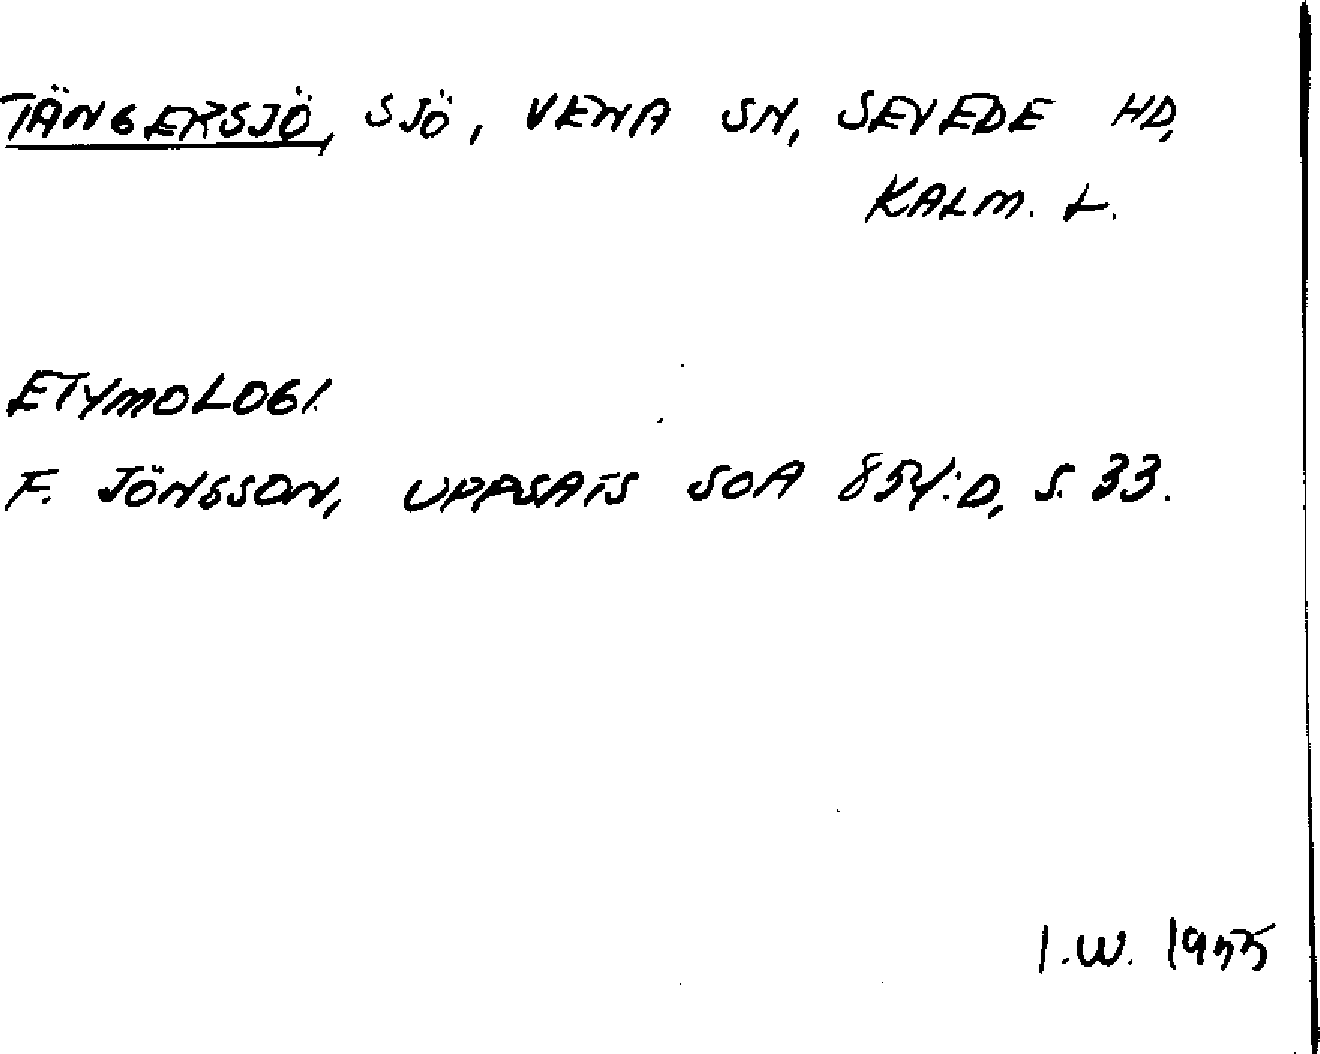 TÄNGERSJÖ, SJÖ, VENA SN, SEVEDE HD,
KALM. L.
ETYMOLOGI
F. JÖNSSON, UPPSATS SOA 854:D, S. 33.
I.W.